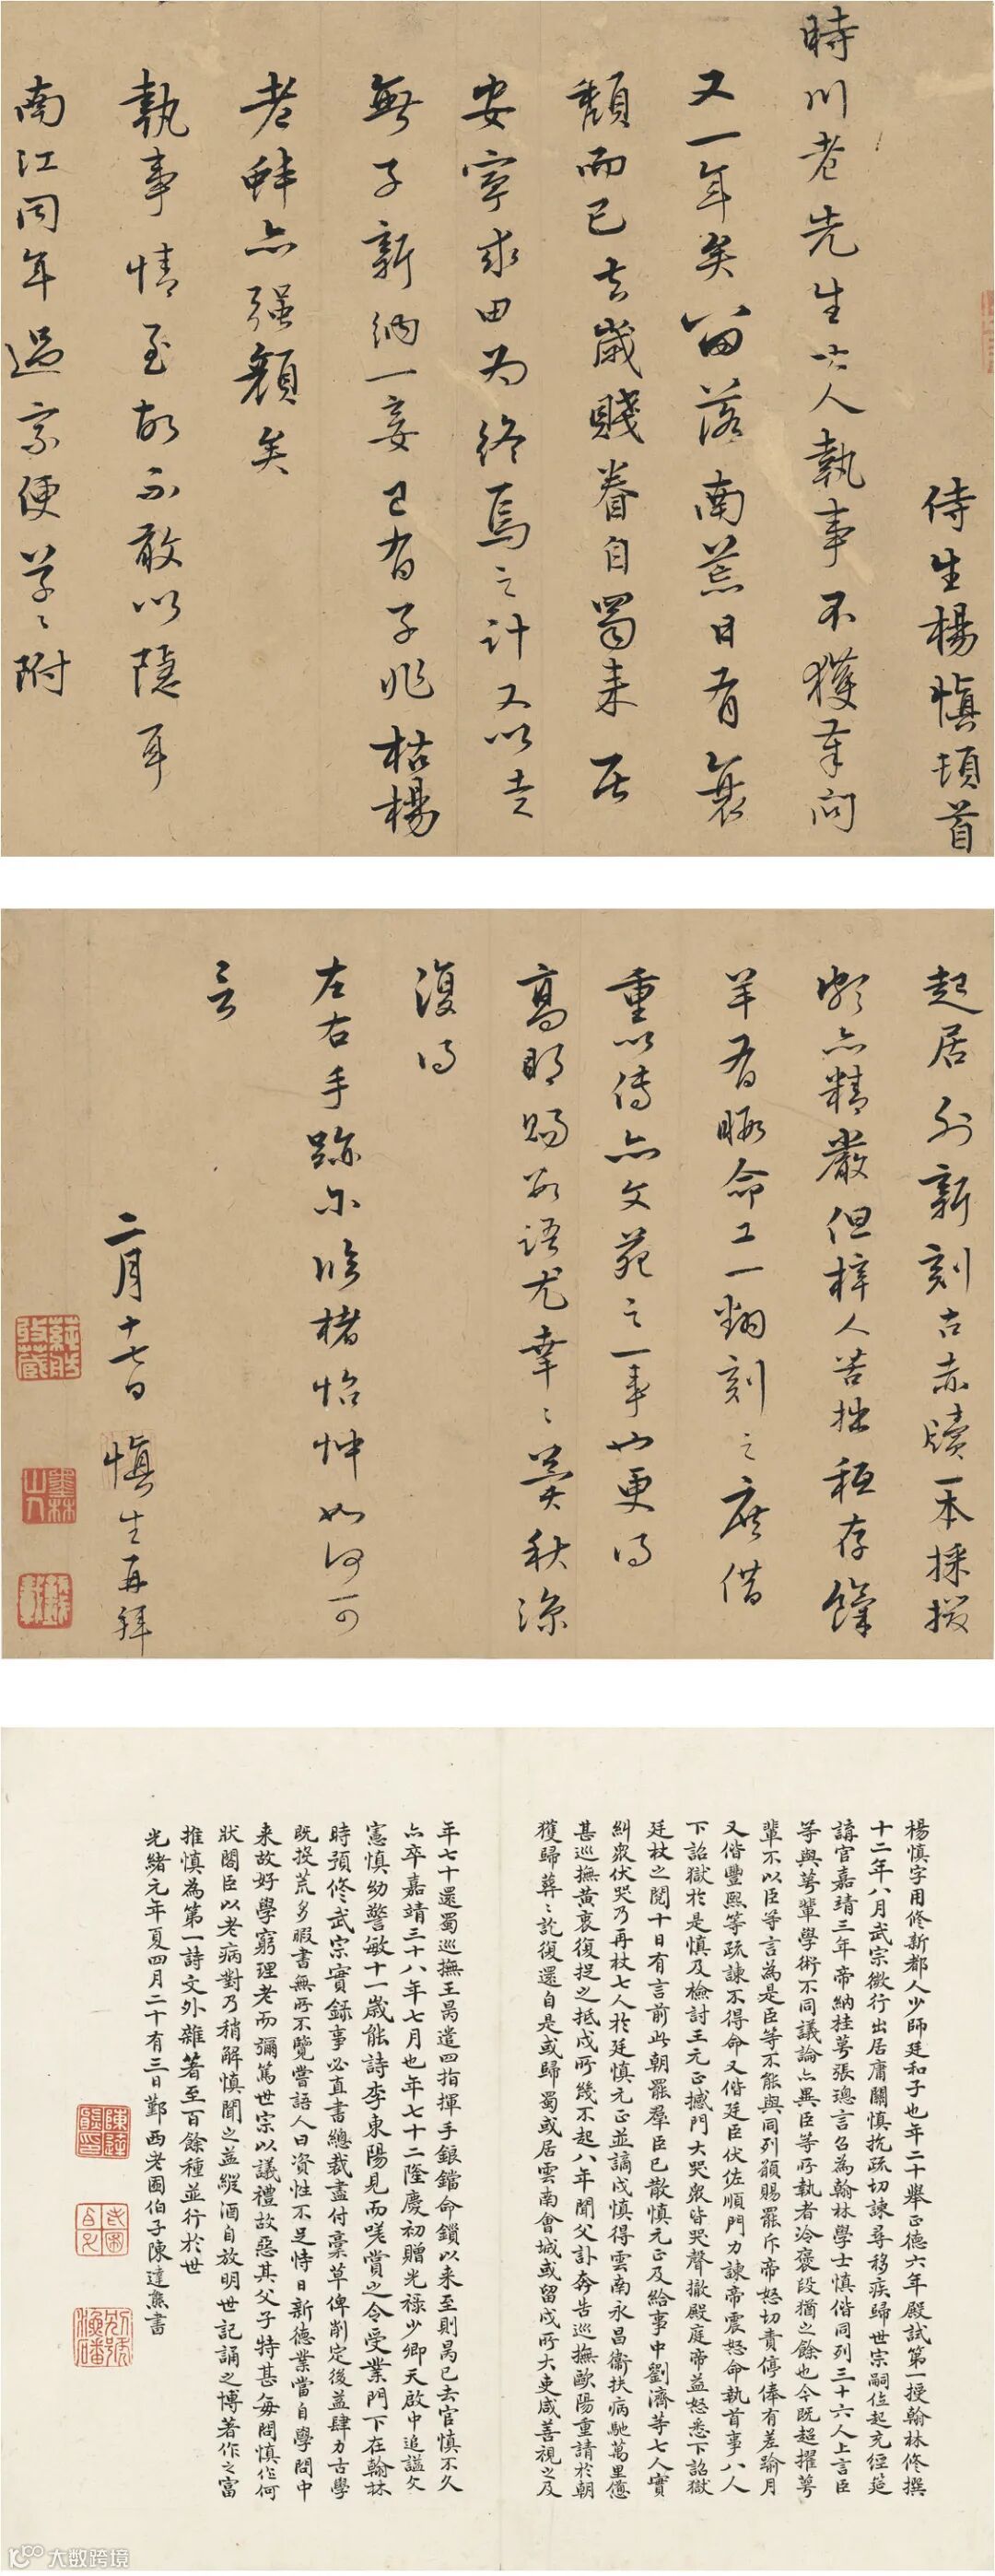 侍生楊慎頓首
時川老先生大人執事不獲奉問
又一年矣留落南荒日有衰
頹而已去歲賤眷自蜀来居
安寧求田为終焉之計又以老
無子新納一妾已有子兆枯楊
老蚌亦强顏矣
執事情至故不敢以隱耳
南江同年過京便草々附
起居外新刻古赤牘一本採掇
亦精嚴但梓人苦拙秪存餼
羊有暇命工一翻刻之庶借
重以傳亦文苑之一事也更得
高明賜数語尤幸々冀秋涼
復得
左右手跡尔臨楮怡忡如何可
言
二月十七日 慎生再拜
墨林
山人
楊慎字用修新都人少師廷和子也年二十舉正德六年殿試第一授翰林修撰
十二年八月武宗微行出居庸關慎抗疏切諫尋移疾歸世宗嗣位起充經筵
講官嘉靖三年帝納桂萼張璁言召為翰林學士慎偕同列三十六人上言臣
等與萼輩學術不同議論亦異臣等所執者冷褒段猶之餘也今既超擢萼
輩不以臣等言為是臣等不能與同列願賜罷斥帝怒切責停俸有差踰月
又偕豐熙等疏諫不得命又偕廷臣伏佐順門力諫帝震怒命執首事八人
下詔獄於是慎及檢討王元正撼門大哭眾皆哭聲撤殿庭帝益怒悉下詔獄
廷杖之閱十日有言前此朝罷羣臣已散慎元正及給事中劉濟等七人實
糾眾伏哭乃再杖七人於廷慎元正並謫戍慎得雲南永昌衞扶病馳萬里憊
甚巡撫黃衷復促之抵戍所幾不起八年聞父訃奔告巡撫歐陽重請於朝
獲歸葬々訖復還自是或歸蜀或居雲南會城或留戍所大吏咸善視之及
年七十還蜀巡撫王昺遣四指揮手鋃鐺命鎖以来至則昺已去官慎不久
亦卒嘉靖三十八年七月也年七十二隆慶初贈光祿少卿天啟中追謚文
憲慎幼警敏十一歲能詩李東陽見而嗟賞之令受業門下在翰林
時預修武宗實録事必直書總裁盡付稾草俾削定後益肆力古學
既投荒多暇書無所不覽嘗語人曰資性不足恃日新德業當自學問中
来故好學窮理老而彌篤世宗以議禮故惡其父子特甚每問慎作何
狀閣臣以老病對乃稍解慎聞之益縱酒自放明世記誦之博著作之富
推慎為第一詩文外雜著至百餘種並行於世
光緒元年夏四月二十有三日鄞西老圃伯子陳達熊書
大数跨境